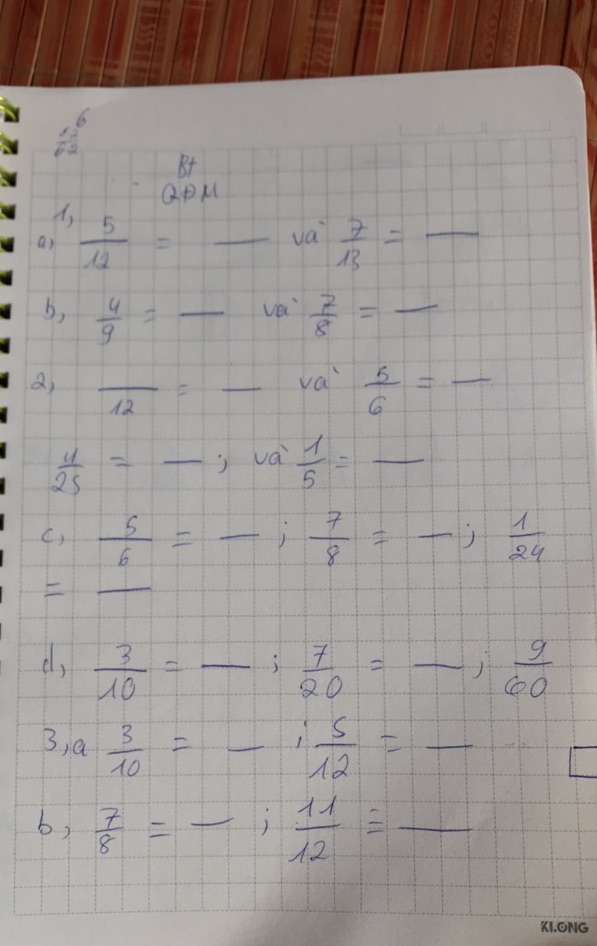 6
Bt
QĐM
1,
a, 5/12 = — và 7/13 = —
b, 4/9 = — và 7/8 = —
2, —/12 = — và 5/6 = —
4/25 = — ; và 1/5 = —
c, 5/6 = — ; 7/8 = — ; 1/24
= —
d, 3/10 = — ; 7/20 = — ; 9/60
3, a 3/10 = — ; 5/12 = —
b, 7/8 = — ; 11/12 = —
KLONG